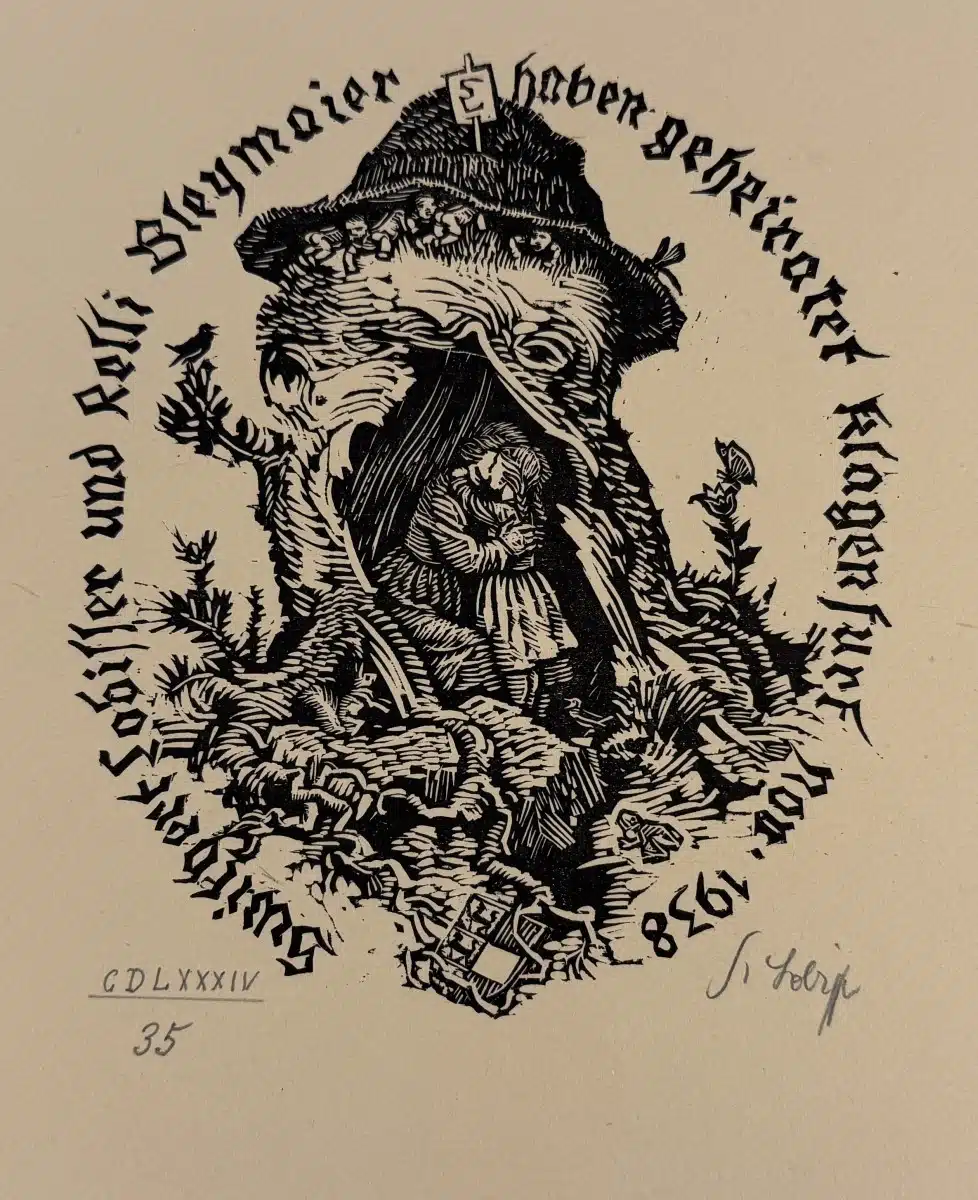 Suitbert Lobisser und Relli Bleymaier haben geheiratet Klagenfurt Nov. 1938
CDLXXXIV
35